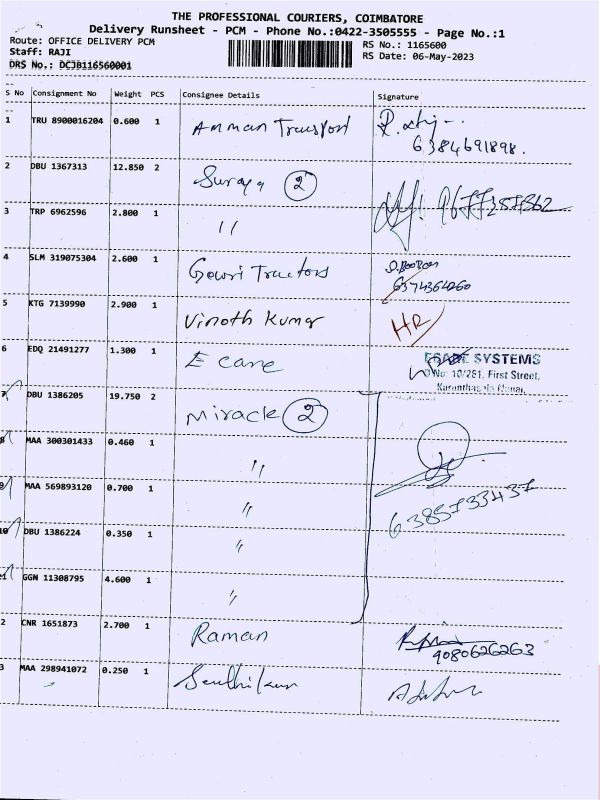 THE PROFESSIONAL COURIERS, COIMBATORE
Delivery Runsheet - PCM - Phone No.:0422-3505555 - Page No.:1
Route: OFFICE DELIVERY PCM
Staff: RAJI
DRS No.: DCJB116560001
RS No.: 1165600
RS Date: 06-May-2023
S No Consignment No Weight PCS Consignee Details Signature
1 TRU 8900016204 0.600 1 Amman Transport
6384691898.
2 DBU 1367313 12.850 2 Suraya 2
3 TRP 6962596 2.800 1 "
4 SLM 319075304 2.600 1 Gowri Tractors
6374364260
5 KTG 7139990 2.900 1 Vinoth Kumar HR
6 EDQ 21491277 1.300 1 E care
SYSTEMS
No: 10/281, First Street,
7 DBU 1386205 19.750 2 Miracle 2
8 MAA 300301433 0.460 1 "
9 MAA 569893120 0.700 1 "
6385733437
10 DBU 1386224 0.350 1 "
GGN 11308795 4.600 1 "
2 CNR 1651873 2.700 1 Raman
9080626263
3 MAA 298941072 0.250 1